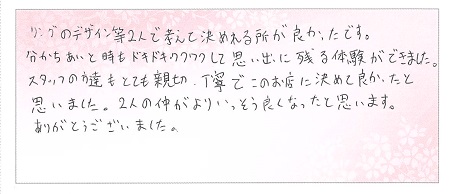 リングのデザイン等2人で考えて決めれる所が良かったです。
分かちあいと時もドキドキワクワクして思い出に残る体験ができました。
スタッフの方達もとても親切、丁寧でこのお店に決めて良かったと
思いました。2人の仲がよりいっそう良くなったと思います。
ありがとうございました。